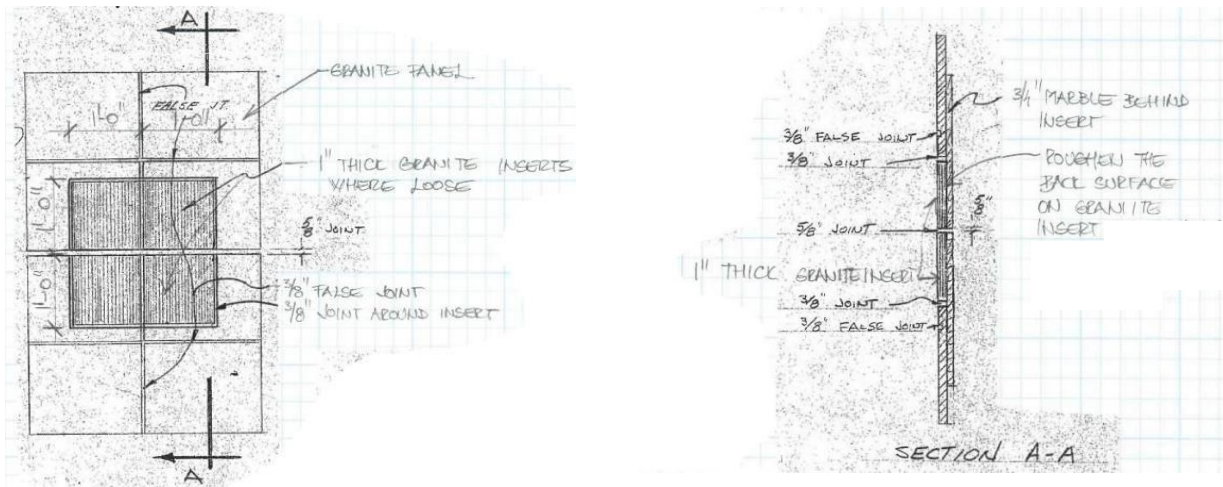 A
GRANITE PANEL
FALSE JT.
1'-0"
1'-0"
1" THICK GRANITE INSERTS
WHERE LOOSE
1'-0"
5/8" JOINT
1'-0"
3/8" FALSE JOINT
3/8" JOINT AROUND INSERT
A
3/4" MARBLE BEHIND
INSERT
3/8" FALSE JOINT
3/8" JOINT
ROUGHEN THE
BACK SURFACE
ON GRANITE
INSERT
5/8"
5/8" JOINT
1" THICK GRANITE INSERT
3/8" JOINT
3/8" FALSE JOINT
SECTION A-A